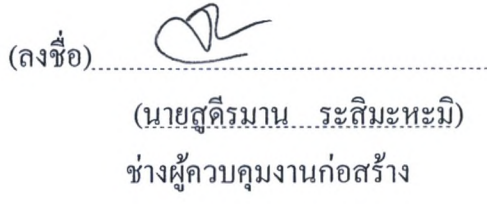 (ลงชื่อ)
(นายสูดีรมาน ระสิมะหะมิ)
ช่างผู้ควบคุมงานก่อสร้าง